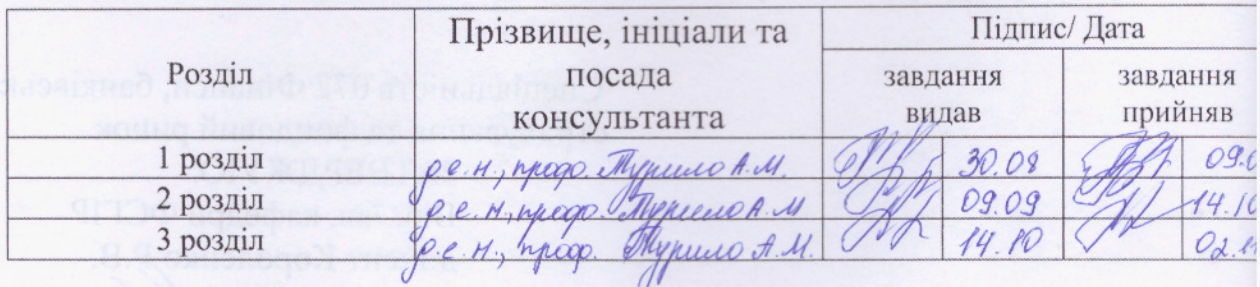 Розділ Прізвище, ініціали та посада консультанта Підпис/ Дата
завдання видав завдання прийняв
1 розділ д.е.н., проф. Турило А.М. 30.08 09.0
2 розділ д.е.н., проф. Турило А.М 09.09 14.10
3 розділ д.е.н., проф. Турило А.М. 14.10 02.1